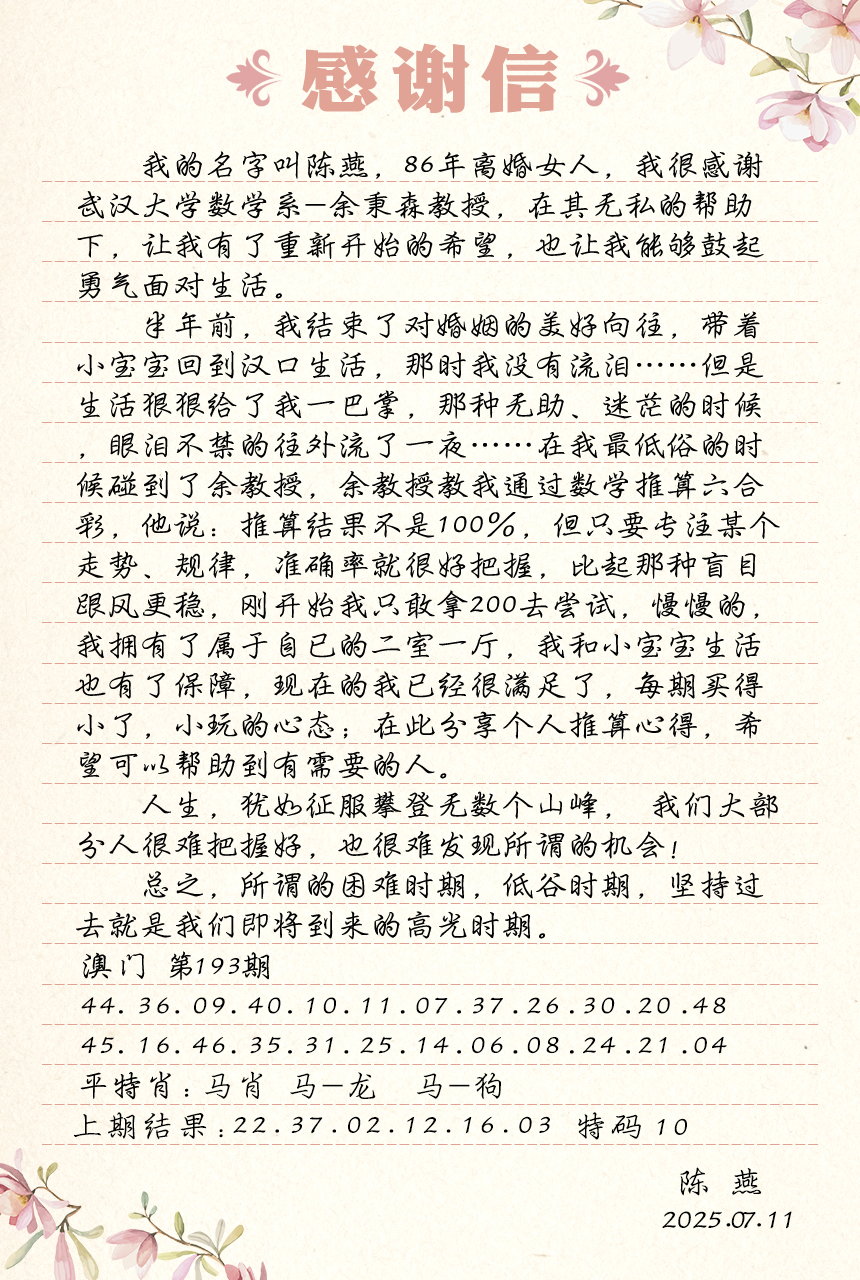 感谢信
我的名字叫陈燕，86年离婚女人，我很感谢
武汉大学数学系—余秉森教授，在其无私的帮助
下，让我有了重新开始的希望，也让我能够鼓起
勇气面对生活。
半年前，我结束了对婚姻的美好向往，带着
小宝宝回到汉口生活，那时我没有流泪……但是
生活狠狠给了我一巴掌，那种无助、迷茫的时候
，眼泪不禁的往外流了一夜……在我最低俗的时
候碰到了余教授，余教授教我通过数学推算六合
彩，他说：推算结果不是100%，但只要专注某个
走势、规律，准确率就很好把握，比起那种盲目
跟风更稳，刚开始我只敢拿200去尝试，慢慢的，
我拥有了属于自已的二室一厅，我和小宝宝生活
也有了保障，现在的我已经很满足了，每期买得
小了，小玩的心态；在此分享个人推算心得，希
望可以帮助到有需要的人。
人生，犹如征服攀登无数个山峰， 我们大部
分人很难把握好，也很难发现所谓的机会！
总之，所谓的困难时期，低谷时期，坚持过
去就是我们即将到来的高光时期。
澳门 第193期
44.36.09.40.10.11.07.37.26.30.20.48
45.16.46.35.31.25.14.06.08.24.21.04
平特肖：马肖 马—龙 马—狗
上期结果：22.37.02.12.16.03 特码10
陈 燕
2025.07.11